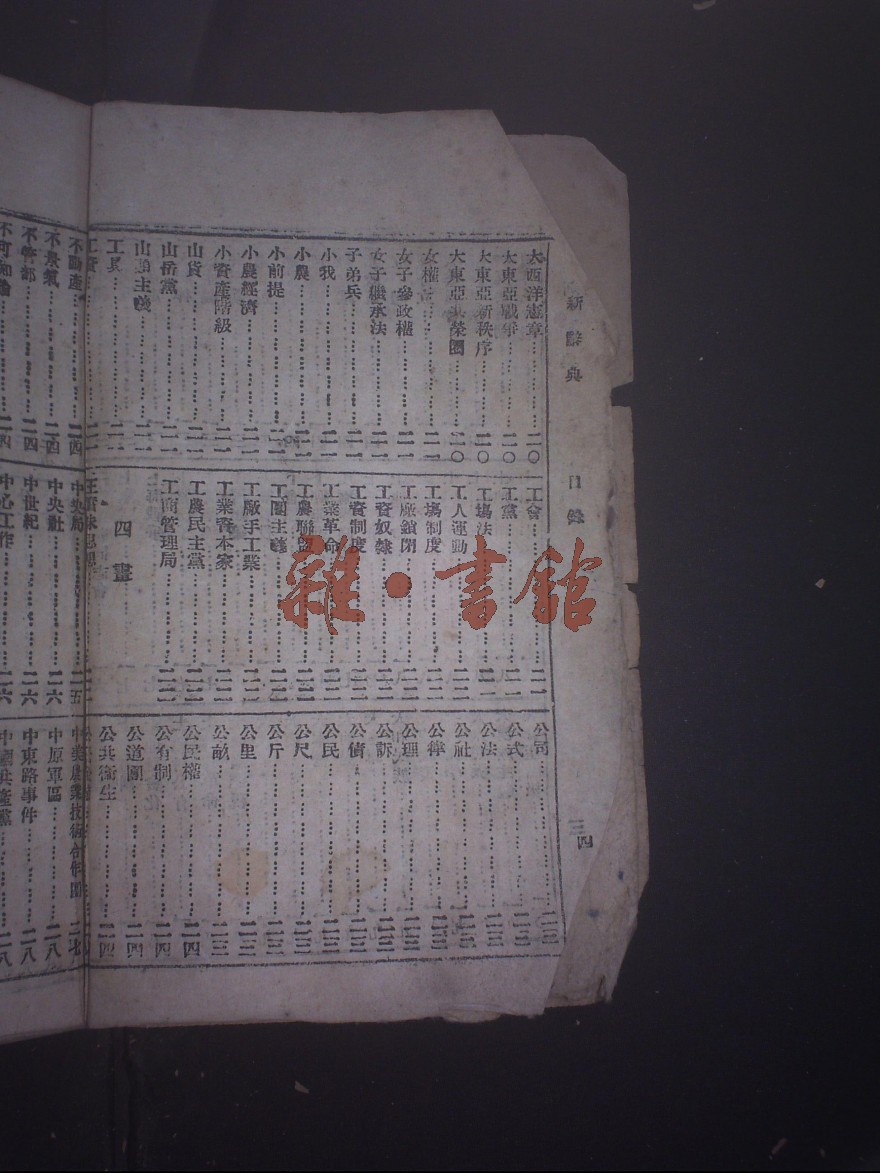 新辭典 目錄 三四
大西洋憲章 二〇
大東亞戰爭 二〇
大東亞新秩序 二〇
大東亞共榮圈 二〇
女權 二一
女子參政權 二一
女子繼承法 二一
子弟兵 二一
小我 二一
小農 二一
小前提 二一
小農經濟 二一
小資產階級 二一
山貨 二一
山岳黨 二一
山頭主義 二一
工具
工資
工會 二一
工黨 二一
工場法 二一
工人運動 二二
工場制度 二二
工廠鎖閉 二二
工資奴隸 二二
工資制度 二二
工業革命 二二
工農聯盟 二二
工團主義 二二
工廠手工業 二二
工業資本家 二二
工農民主黨 二二
工商管理局 二二
四畫
王實味思想
公司 二三
公式 二三
公法 二三
公社 二三
公律 二三
公理 二三
公訴 二三
公債 二三
公民 二三
公尺 二三
公斤 二三
公里 二三
公畝 二三
公民權 二四
公有制 二四
公道團 二四
公共衛生 二四
不動產 二四
不景氣 二四
不管部 二四
不可知論 二四
中央局 二五
中央社 二六
中世紀 二六
中心工作 二六
中美農業技術合作團 二七
中原軍區 二八
中東路事件 二八
中國共產黨 二八
雜·書館